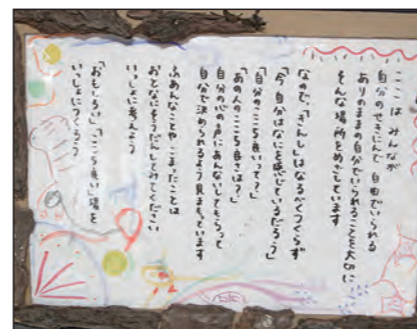 ここは みんなが
自分のせきにんで 自由でいられる
ありのままの自分でいられることを大切に
そんな場所をめざしています
なので、「きんし」はなるべくつくらず
「今、自分はなにを感じているだろう」
「自分のここち良いって?」
「あの人のここち良さは?」
自分の心の声にあんないしてもらって
自分で決められるよう見まもっています
ふあんなことや、こまったことは
おとなにそうだんしてみてください
いっしょに考えよう
「おもしろい」「ここち良い」場を
いっしょにつくろう